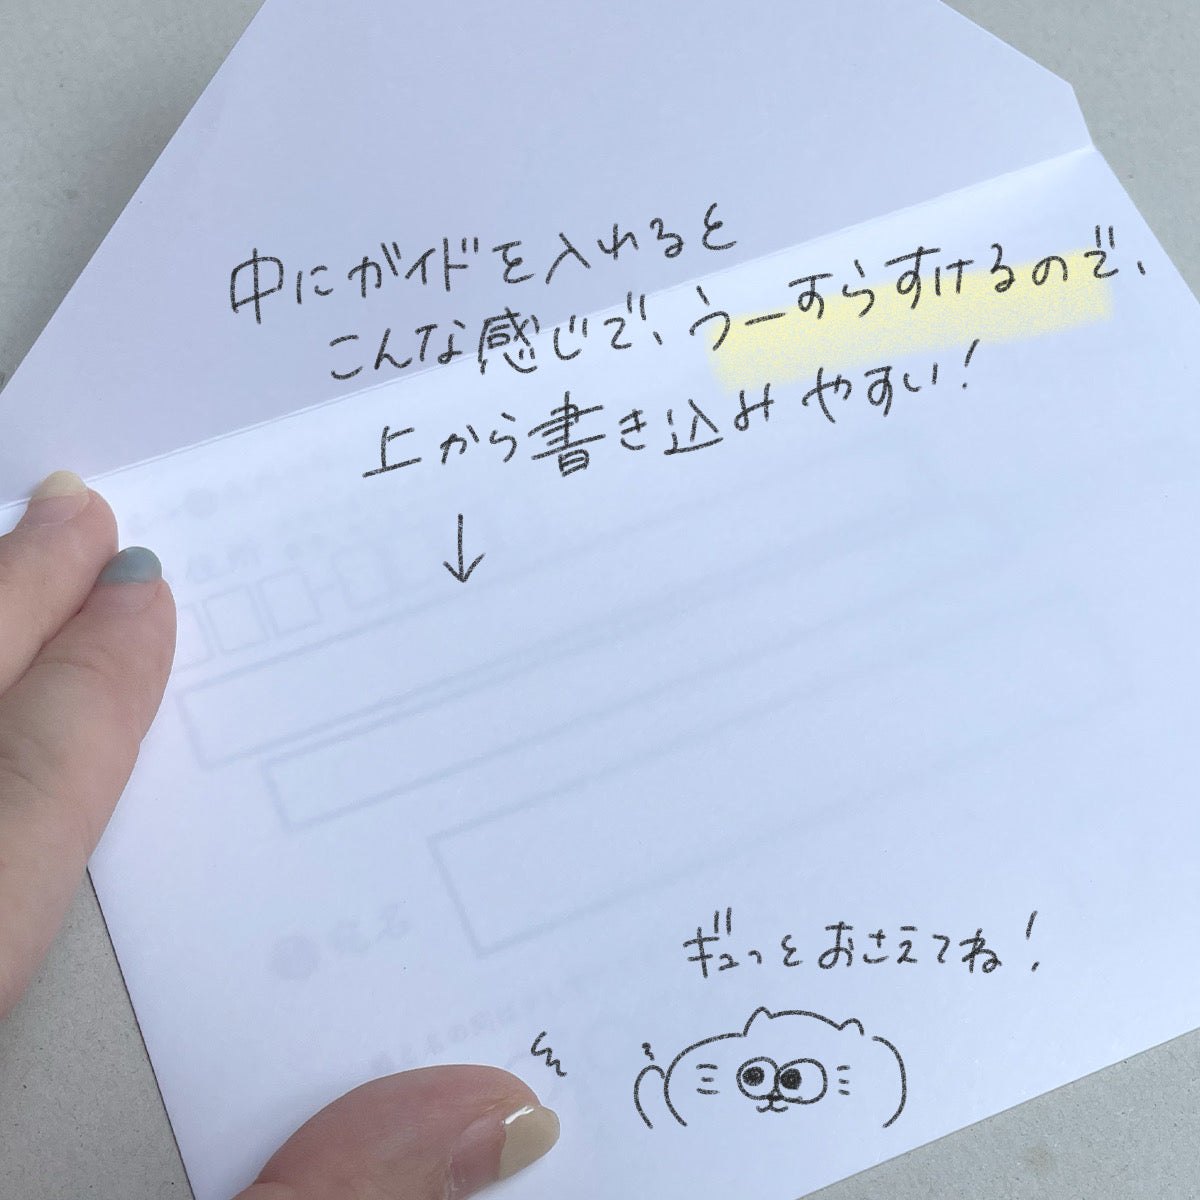 中にガイドを入れると
こんな感じで、うーすらすけるので、
上から書き込みやすい!
↓
住所
宛名
ギュっとおさえてね!